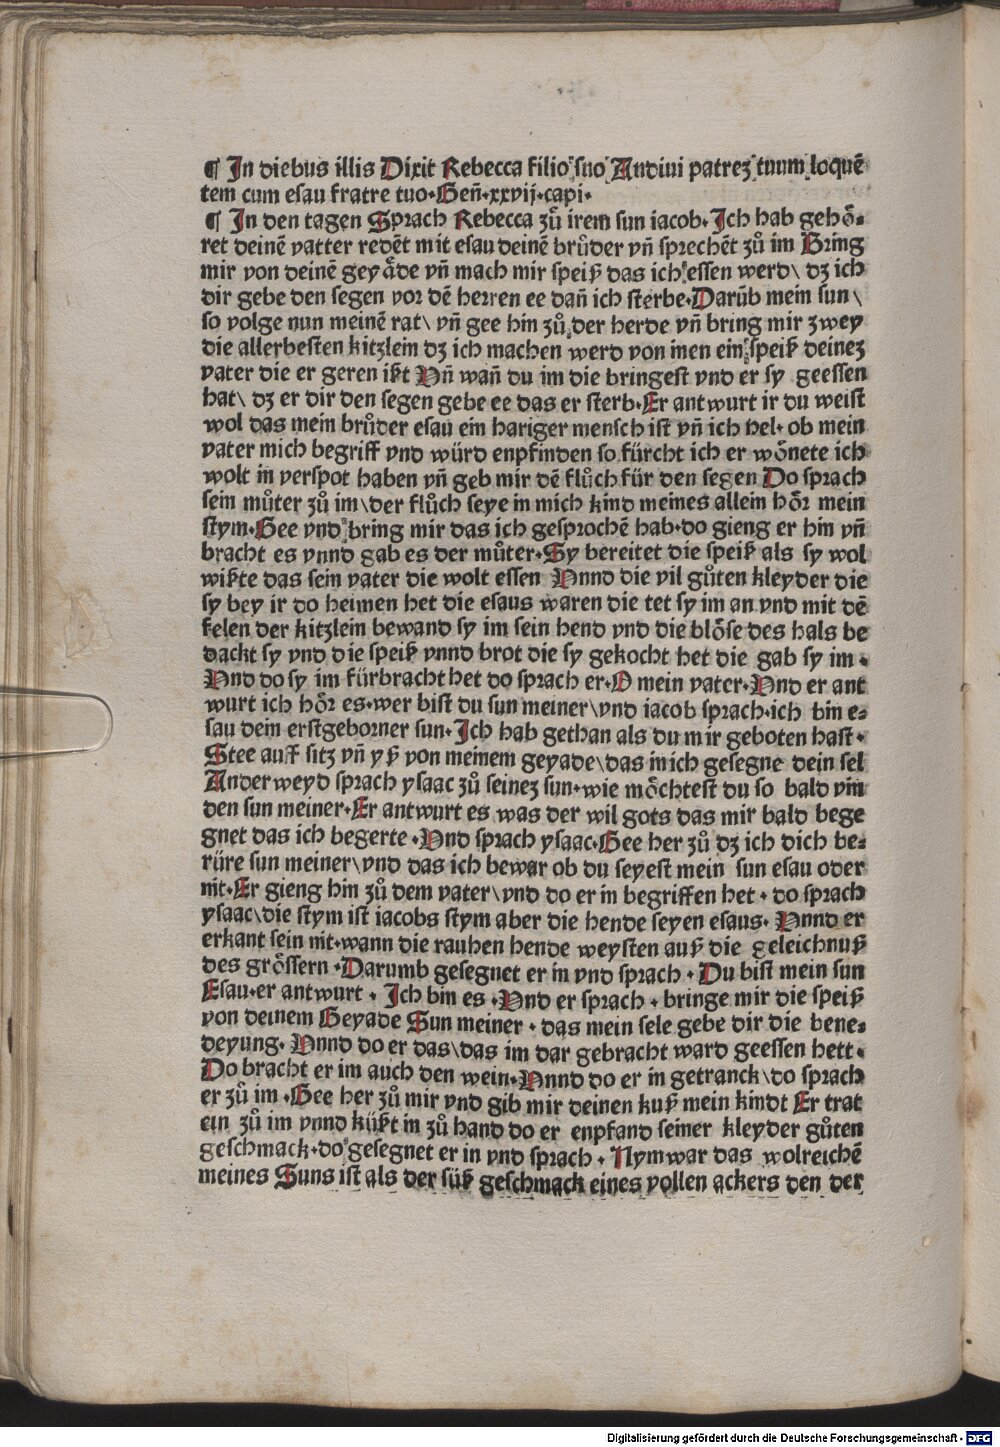 ¶ In diebus illis Dixit Rebecca filio suo Audiui patrez tuum loquē
tem cum esau fratre tuo·Geñ·xxvij·capi·
¶ In den tagen Sprach Rebecca zů irem sun iacob·Ich hab gehö⸗
ret deinē vatter redēt mit esau deinē brůder vñ sprechēt zů im Bring
mir von deinē geyäde vñ mach mir speiß das ich essen werd\ dz ich
dir gebe den segen vor dē herren ee dañ ich sterbe·Darūb mein sun\
so volge nun meinē rat\ vñ gee hin zů der herde vñ bring mir zwey
die allerbesten kitzlein dz ich machen werd von inen ein speiß deinez
vater die er geren ißt Vñ wañ du im die bringest vnd er sy geessen
hat\ dz er dir den segen gebe ee das er sterb·Er antwurt ir du weist
wol das mein brůder esau ein hariger mensch ist vñ ich hel·ob mein
vater mich begriff vnd würd enpfinden so fürcht ich er wönete ich
wolt in verspot haben vñ geb mir dē flůch für den segen Do sprach
sein můter zů im\der flůch seye in mich kind meines allein hör mein
stym·Gee vnd bring mir das ich gesprochē hab·do gieng er hin vñ
bracht es vnnd gab es der můter·Sy bereitet die speiß als sy wol
wißte das sein vater die wolt essen Vnnd die vil gůten kleyder die
sy bey ir do heimen het die esaus waren die tet sy im an vnd mit dē
felen der kitzlein bewand sy im sein hend vnd die blöse des hals be
dackt sy vnd die speiß vnnd brot die sy gekocht het die gab sy im·
Vnd do sy im fürbracht het do sprach er·O mein vater·Vnd er ant
wurt ich hör es·wer bist du sun meiner\vnd iacob sprach·ich bin e⸗
sau dein erstgeborner sun·Ich hab gethan als du mir geboten hast·
Stee auff sitz vñ yß von meinem geyade\das mich gesegne dein sel
Anderweyd sprach ysaac zů seinez sun·wie möchtest du so bald vin
den sun meiner·Er antwurt es was der wil gots das mir bald bege
gnet das ich begerte·Vnd sprach ysaac·Gee her zů dz ich dich be⸗
rüre sun meiner\vnd das ich bewar ob du seyest mein sun esau oder
nit·Er gieng hin zů dem vater\vnd do er in begriffen het·do sprach
ysaac\die stym ist iacobs stym aber die hende seyen esaus·Vnnd er
erkant sein nit·wann die rauhen hende weysten auß die geleichnuß
des grössern·Darumb gesegnet er in vnd sprach·Du bist mein sun
Esau·er antwurt·Ich bin es·Vnd er sprach·bringe mir die speiß
von deinem Geyade Sun meiner·das mein sele gebe dir die bene⸗
deyung·Vnnd do er das\das im dar gebracht ward geessen hett·
Do bracht er im auch den wein·Vnnd do er in getranck\do sprach
er zů im·Gee her zů mir vnd gib mir deinen kuß mein kindt Er trat
ein zů im vnnd küßt in zů hand do er enpfand seiner kleyder gůten
geschmack·do gesegnet er in vnd sprach·Nym war das wolreichē
meines Suns ist als der süß geschmack eines vollen ackers den der
Digitalisierung gefördert durch die Deutsche Forschungsgemeinschaft - DFG